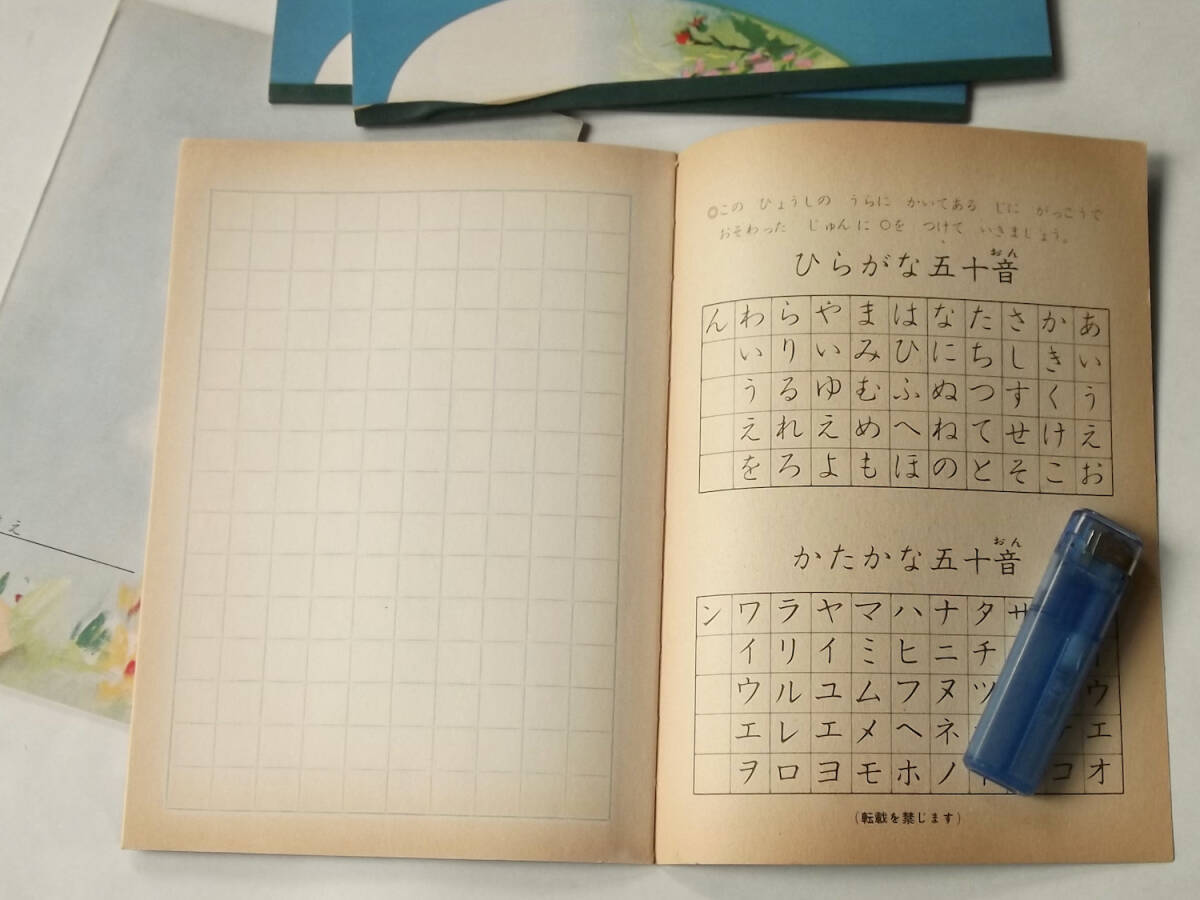 ◎この ひょうしの うらに かいてある じに がっこうで
おそわった じゅんに ○を つけて いきましょう。
おん
ひらがな五十音
んわらやまはなたさかあ
いりいみひにちしきい
うるゆむふぬつすくう
えれえめへねてせけえ
をろよもほのとそこお
おん
かたかな五十音
ンワラヤマハナタサ
イリイミヒニチ
ウルユムフヌツ ウ
エレエメヘネ エ
ヲロヨモホノ コオ
(転載を禁じます)
え